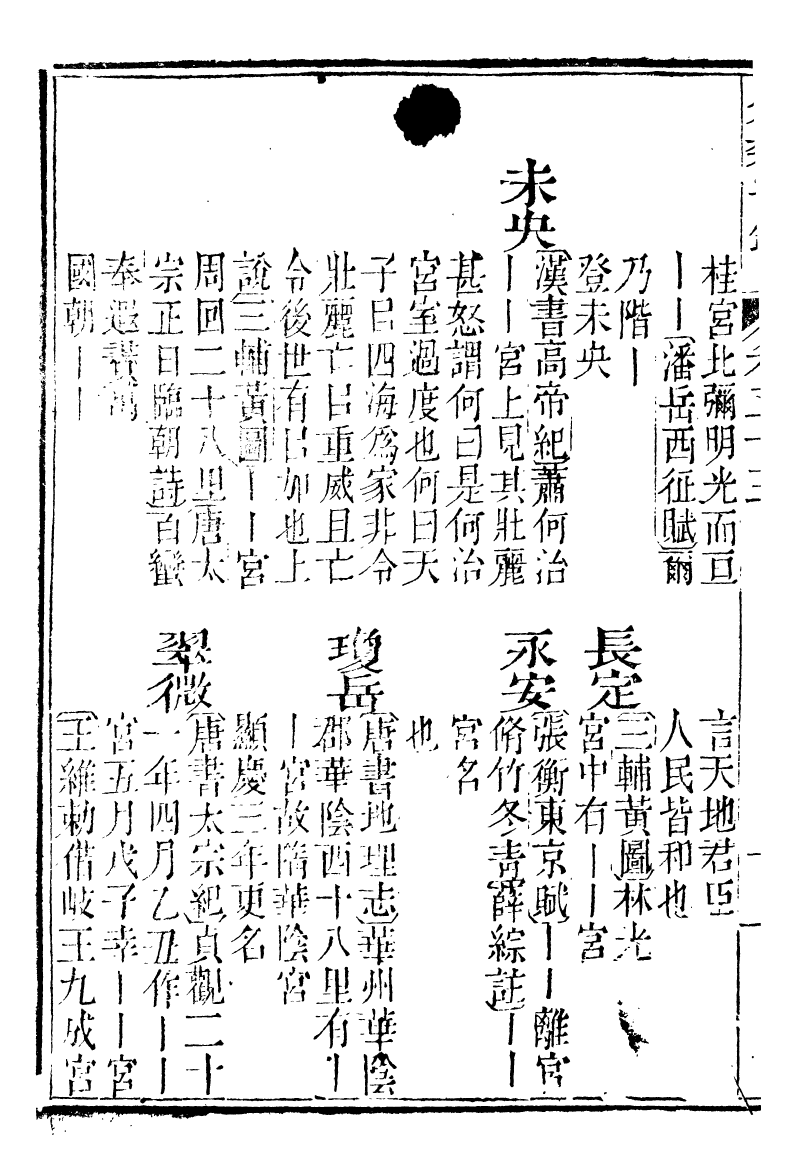 桂宮北彌明光而亘
｜｜潘岳西征賦爾
乃階｜
登未央
未央
漢書高帝紀蕭何治
｜｜宮上見其壯麗
甚怒謂何曰是何治
宮室過度也何曰天
子㠯四海爲家非令
壯麗亡㠯重威且亡
令後世有㠯加也上
說三輔黃圖｜｜宮
周回二十八里唐太
宗正日臨朝詩百蠻
奉遐賮萬
國朝｜｜
言天地君臣
人民皆和也
長定
三輔黃圖林光
宮中有｜｜宮
永安
張衡東京賦｜｜離宮
脩竹冬靑薛綜註｜｜
宮名
也
瓊岳
唐書地理志華州華陰
郡華陰西十八里有｜
｜宮故隋華陰宮
顯慶三年更名
翠微
唐書太宗紀貞觀二十
一年四月乙丑作｜｜
宮五月戊子幸｜｜宮
王維勅借岐王九成宮